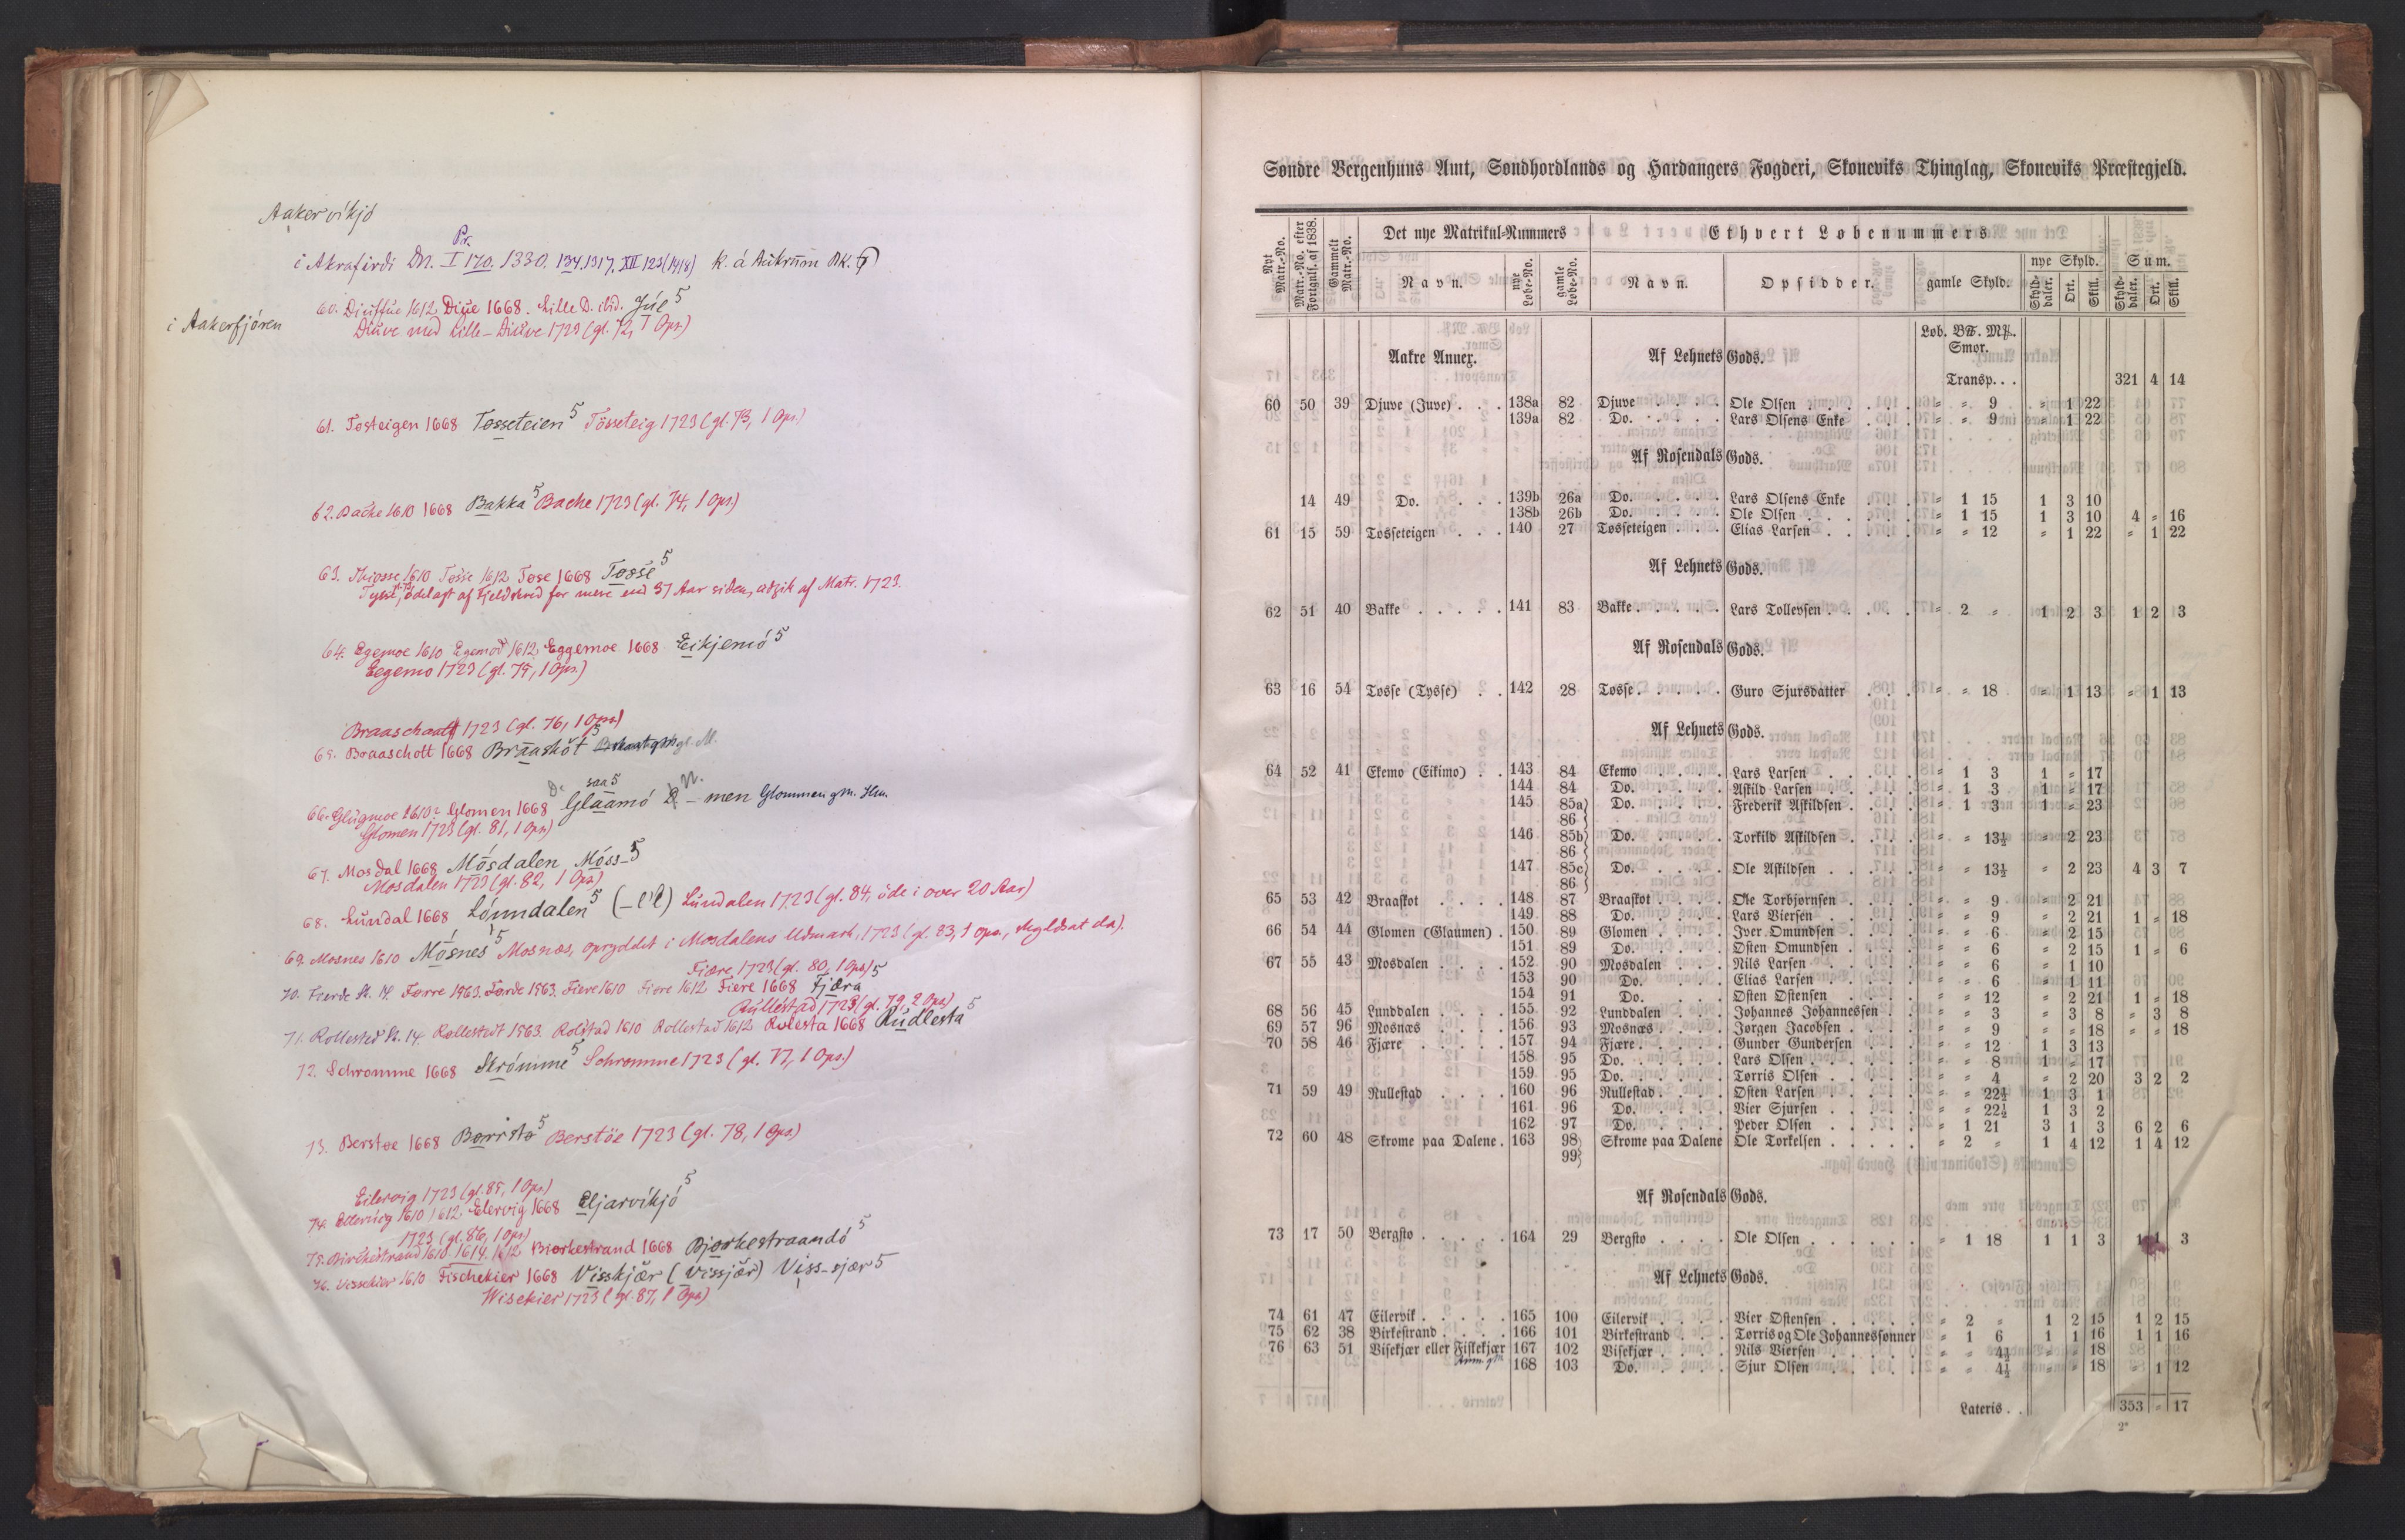 Aakervikjó
Pr.
i Akrafirdi Dn. I 170. 1330. 134. 1317, XII 123 (1418) k. á Aukrum BK.
i Aakerfjóren
60. Diuffue 1612 Diue 1668. Lille D. ibid. Júe 5
Diuve med Lille-Diuve 1723 (gl. 72, 1 Ops.)
61. Tosteigen 1668 Tosseteien 5 Tösseteig 1723 (gl. 73, 1 Ops.)
62. Backe 1610 1668 Bakka 5 Bache 1723 (gl. 74, 1 Ops.)
63. Thiosse 1610 Tosse 1612 Tose 1668 Tosse 5
Tysse, ödelagt af Fjeldskred for mere end 37 Aar siden, udgik af Matr. 1723.
64. Egemoe 1610 Egemod 1612 Eggemoe 1668 Eikjemó 5
Eegemo 1723 (gl. 75, 1 Ops.)
Braaschaatt 1723 (gl. 76, 1 Ops.)
65. Braaschott 1668 Braaskót 5 gl. M.
66. Glugmoe 1610? Glomen 1668 Glaamó - men Glommen gm. Hm.
Glomen 1723 (gl. 81, 1 Ops.)
67. Mosdal 1668 Mósdalen Móss- 5
Mosdalen 1723 (gl. 82, 1 Ops.)
68. Lundal 1668 Lónndalen 5 Lundalen 1723 (gl. 84, öde i over 20 Aar)
69. Mosnes 1610 Mósnes 5 Mosnæs, opryddet i Mosdalens Udmark, 1723 (gl. 83, 1 Ops., skyldsat da).
Fiære 1723 (gl. 80, 1 Ops.) 5
70. Ferre 1563. Førde 1563. Fiere 1610 Fiere 1612 Fiere 1668 Fjæra
Rullestad 1723 (gl. 79, 2 Ops.)
71. Rollested St. 14. Rollestedt 1563. Rolstad 1610 Rollestad 1612 Rolesta 1668 Rudlesta 5
72. Schromme 1668 Skrómme 5 Schromme 1723 (gl. 77, 1 Ops.)
73. Berstøe 1668 Børrsto 5 Berstöe 1723 (gl. 78, 1 Ops.)
Eilervig 1723 (gl. 85, 1 Ops.)
74. Ellervig 1610 1612. Elervig 1668 Eljarvikjó 5
1723 (gl. 86, 1 Ops.)
75. Birckestrand 1610. 1614. 1612 Biorkestrand 1668 Bjorkestraandó 5
76. Vissekier 1610 Fischekier 1668 Visskjær (Vissjær) Viss-sjær 5
Wisekier 1723 (gl. 87, 1 Ops.)
Søndre Bergenhuus Amt, Søndhordlands og Hardangers Fogderi, Skoneviks Thinglag, Skoneviks Præstegjeld.
Nyt Matr.-No. Matr.-No. efter Fortgnels. af 1838. Gammelt Matr.-No. Det nye Matrikul-Nummers Ethvert Løbenummers
Navn. nye Løbe-No. gamle Løbe-No. Navn. Opsidder. gamle Skyld. nye Skyld. Sum.
Skylddaler. Ort. Skill. Skylddaler. Ort. Skill.
Løb. B℔. M℔.
Smør.
Aakre Annex. Af Lehnets Gods.
Transp... 321 4 14
60 50 39 Djuve (Juve) . . . 138a 82 Djuve . . . . Ole Olsen . . . . . . = = 9 = 1 22
139a 82 Do. . . . . Lars Olsens Enke . . . = = 9 = 1 22
Af Rosendals Gods.
14 49 Do. . . . 139b 26a Do. . . . . Lars Olsens Enke . . . = 1 15 1 3 10
138b 26b Do. . . . . Ole Olsen . . . . . . = 1 15 1 3 10 4 = 16
61 15 59 Tosseteigen . . . 140 27 Tosseteigen . . . Elias Larsen . . . . . = = 12 = 1 22 = 1 22
Af Lehnets Gods.
62 51 40 Bakke . . . . . 141 83 Bakke . . . . . Lars Tollevsen . . . . . = 2 = 1 2 3 1 2 3
Af Rosendals Gods.
63 16 54 Tosse (Tysse) . . 142 28 Tosse . . . . . Guro Sjursdatter . . . = = 18 = 1 13 = 1 13
Af Lehnets Gods.
64 52 41 Ekemo (Eikimo) . . 143 84 Ekemo . . . . Lars Larsen . . . . . = 1 3 1 = 17
144 84 Do. . . . . Askild Larsen . . . . . = 1 3 1 = 17
145 85a} Do. . . . . Frederik Askildsen . . . . = 1 3 1 = 23
86}
146 85b} Do. . . . . Torkild Askildsen . . . . = = 13½ = 2 23
86}
147 85c} Do. . . . . Ole Askildsen . . . . . = = 13½ = 2 23 4 3 7
86}
65 53 42 Braaskot . . . . 148 87 Braaskot . . . . Ole Torbjørnsen . . . . = = 9 = 2 21
149 88 Do. . . . . Lars Viersen . . . . . = = 9 = 2 21 1 = 18
66 54 44 Glomen (Glaumen) . 150 89 Glomen . . . . Iver Omundsen . . . . = = 6 = 2 15
151 89 Do. . . . . Østen Omundsen . . . . = = 6 = 2 15 1 = 6
67 55 43 Mosdalen . . . . 152 90 Mosdalen . . . Nils Larsen . . . . . = = 6 = 1 10
153 90 Do. . . . Elias Larsen . . . . . = = 6 = 1 11
154 91 Do. . . . Østen Østensen . . . . = = 12 = 2 21 1 = 18
68 56 45 Lunddalen . . . . 155 92 Lunddalen . . . Johannes Johannessen . . = = 3 = 3 8 = 3 8
69 57 96 Mosnæs . . . . 156 93 Mosnæs . . . . Jørgen Jacobsen . . . . = = 9 = = 18 = = 18
70 58 46 Fjære . . . . . 157 94 Fjære . . . . . Gunder Gundersen . . . = = 12 1 3 13
158 95 Do. . . . . Lars Olsen . . . . . = = 8 1 = 17
159 95 Do. . . . . Torris Olsen . . . . . = = 4 = 2 20 3 2 2
71 59 49 Rullestad . . . . 160 96 Rullestad . . . . Østen Larsen . . . . . = = 22½ 1 3 1
161 96 Do. . . . . Vier Sjursen . . . . . = = 22½ 1 3 2
162 97 Do. . . . . Peder Olsen . . . . . = 1 21 3 1 3 6 2 6
72 60 48 Skrome paa Dalene . 163 98} Skrome paa Dalene Ole Torkelsen . . . . . = 2 = 1 4 12 1 4 12
99}
Af Rosendals Gods.
73 17 50 Bergsto . . . . . 164 29 Bergsto . . . . Ole Olsen . . . . . . = 1 18 1 1 3 1 1 3
Af Lehnets Gods.
74 61 47 Eilervik . . . . . 165 100 Eilervik . . . . Vier Østensen . . . . . = 2 = 1 2 15 1 2 15
75 62 38 Birkestrand . . . . 166 101 Birkestrand . . . Torris og Ole Johannessønner = 1 6 1 1 16 1 1 16
76 63 51 Visekjær eller Fiskekjær 167 102 Visekjær . . . . Nils Viersen . . . . . = = 4½ = = 18
168 103 Do. . . . . Sjur Olsen . . . . . = = 4½ = = 18 = 1 12
Lateris . . 353 = 17
2*